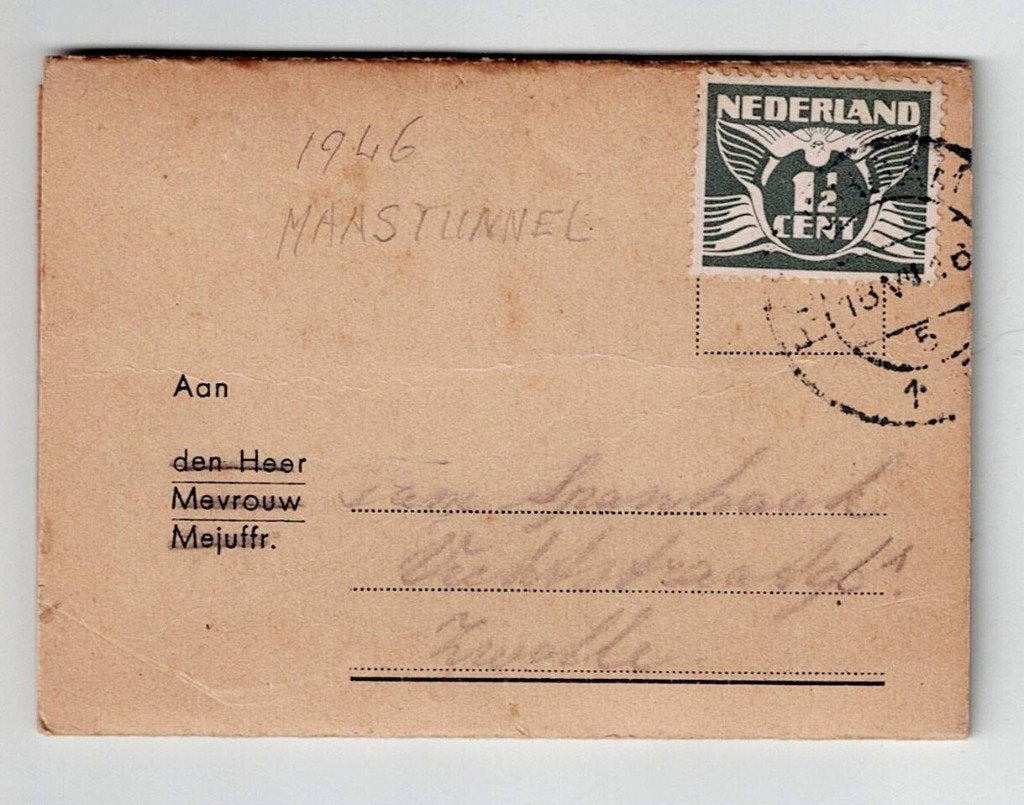 1946
MAASTUNNEL
NEDERLAND
1½
CENT
18 VII
5
1
Aan
den Heer
Mevrouw
Mejuffr.
Fam Spanhaak
Zwolle